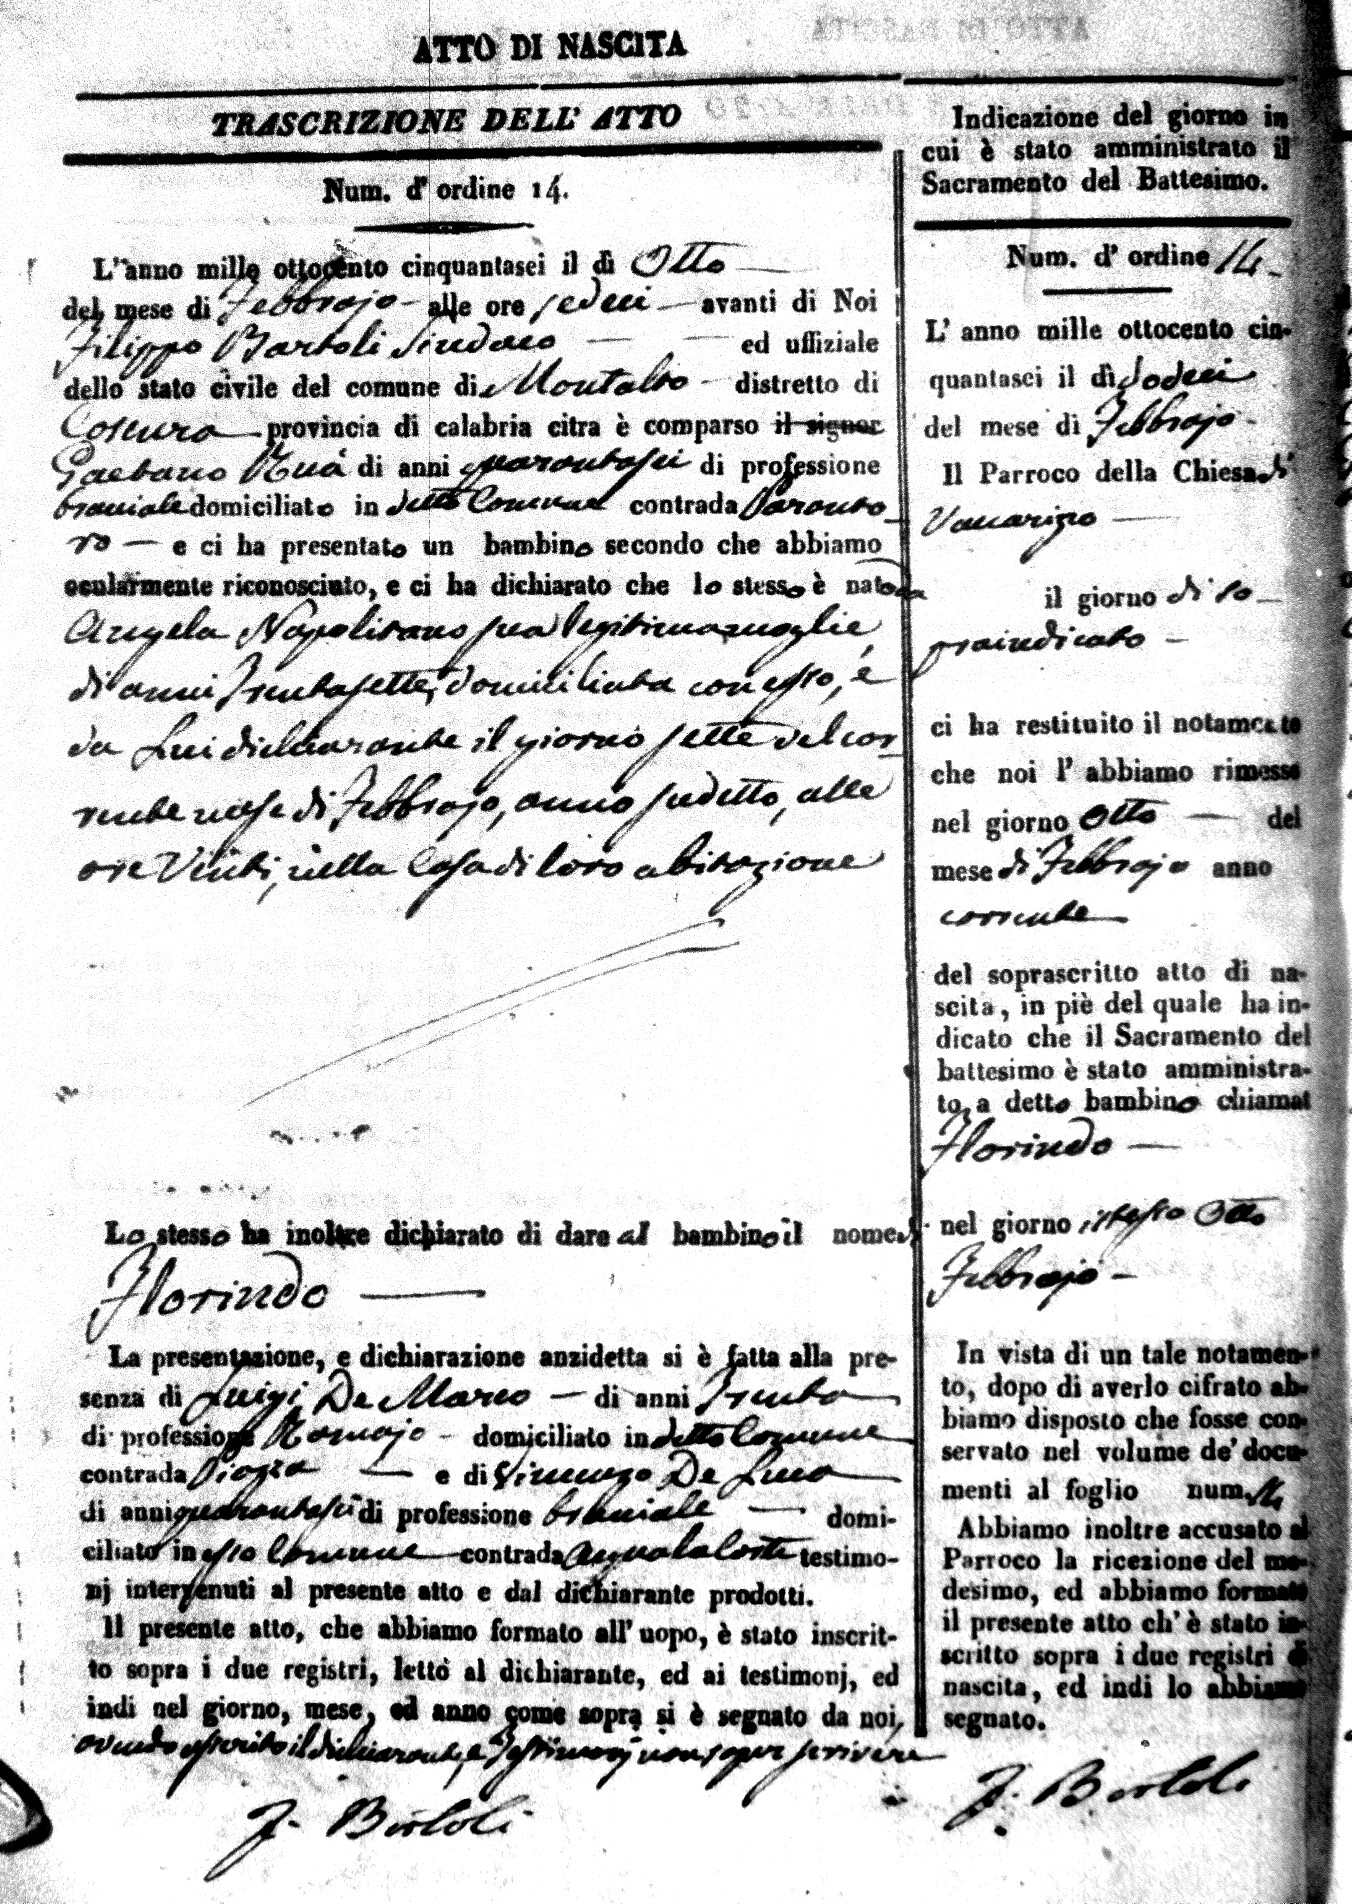 ATTO DI NASCITA
TRASCRIZIONE DELL' ATTO
Num. d' ordine 14.
L' anno mille ottocento cinquantasei il dì Otto
del mese di Febbrajo alle ore sedici avanti di Noi
Filippo Bartoli Sindaco ed uffiziale
dello stato civile del comune di Montalto distretto di
Cosenza provincia di calabria citra è comparso il signor
Gaetano Ruà di anni quarantasei di professione
braciale domiciliato in detto Comune contrada
e ci ha presentato un bambino secondo che abbiamo
ocularmente riconosciuto, e ci ha dichiarato che lo stesso è nato da
Angela Napolitano sua legitima moglie,
di anni trentasette, domiciliata con esso, e
da Lui dichiarante il giorno sette del cor-
rente mese di Febbrajo, anno sudetto, alle
ore Venti, nella Casa di loro abitazione
Lo stesso ha inoltre dichiarato di dare al bambino il nome di
Florindo
La presentazione, e dichiarazione anzidetta si è fatta alla pre-
senza di Luigi De Marco di anni Trenta
di professione domiciliato in detto Comune
contrada Piazza e di Vincenzo De Luca
di anni quarantasei di professione braciale domi-
ciliato in esso Comune contrada testimo-
nj intervenuti al presente atto e dal dichiarante prodotti.
Il presente atto, che abbiamo formato all' uopo, è stato inscrit-
to sopra i due registri, letto al dichiarante, ed ai testimonj, ed
indi nel giorno, mese, ed anno come sopra si è segnato da noi,
avendo asserito il dichiarante, e Testimonj non saper scrivere
F. Bartoli
Indicazione del giorno in
cui è stato amministrato il
Sacramento del Battesimo.
Num. d' ordine 14
L' anno mille ottocento cin-
quantasei il dì dodici
del mese di Febbrajo
Il Parroco della Chiesa di
Vaccarizzo
il giorno di so-
praindicato
ci ha restituito il notamento
che noi l' abbiamo rimesso
nel giorno Otto del
mese di Febbrajo anno
corrente
del soprascritto atto di na-
scita, in piè del quale ha in-
dicato che il Sacramento del
battesimo è stato amministra-
to a detto bambino chiamat
Florindo
nel giorno istesso Otto
Febbrajo
In vista di un tale notamen-
to, dopo di averlo cifrato ab-
biamo disposto che fosse con-
servato nel volume de' docu-
menti al foglio num. 14
Abbiamo inoltre accusato al
Parroco la ricezione del me-
desimo, ed abbiamo formato
il presente atto ch' è stato in-
scritto sopra i due registri di
nascita, ed indi lo abbiamo
segnato.
F. Bartoli